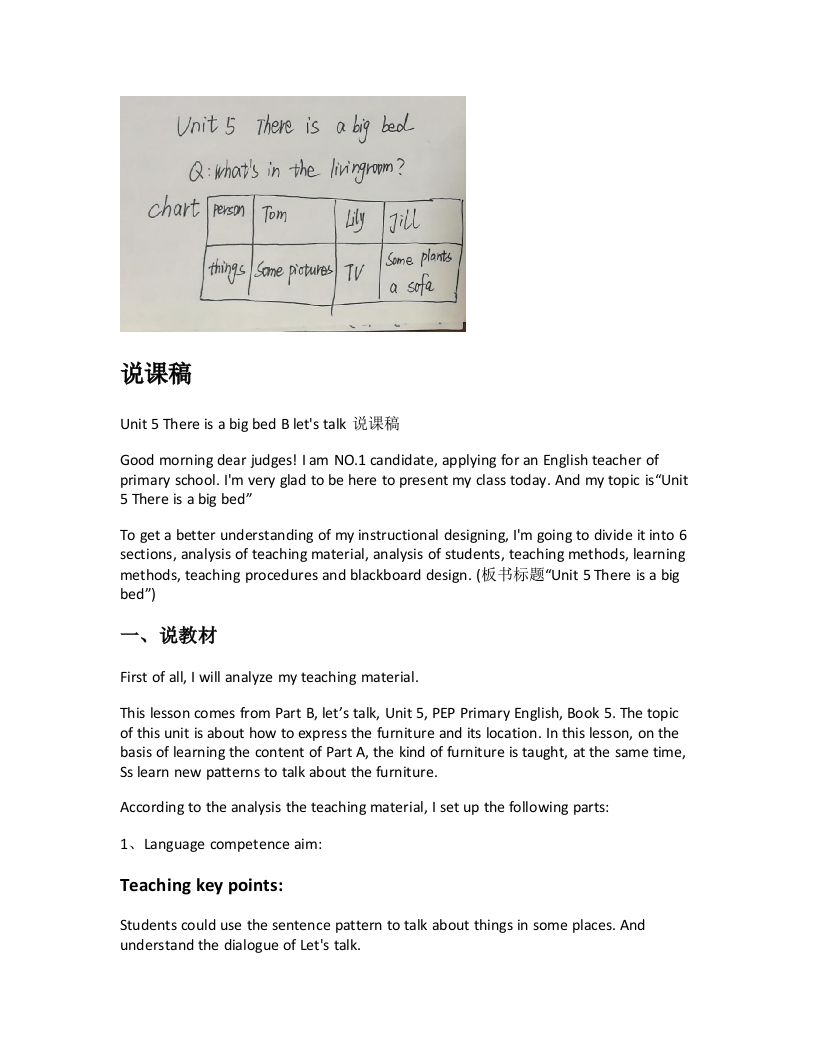 Unit 5 There is a big bed
Q: what's in the livingroom?
chart person Tom Lily Jill
things Some pictures TV Some plants
a sofa
说课稿
Unit 5 There is a big bed B let's talk 说课稿
Good morning dear judges! I am NO.1 candidate, applying for an English teacher of
primary school. I'm very glad to be here to present my class today. And my topic is“Unit
5 There is a big bed”
To get a better understanding of my instructional designing, I'm going to divide it into 6
sections, analysis of teaching material, analysis of students, teaching methods, learning
methods, teaching procedures and blackboard design. (板书标题“Unit 5 There is a big
bed”)
一、说教材
First of all, I will analyze my teaching material.
This lesson comes from Part B, let’s talk, Unit 5, PEP Primary English, Book 5. The topic
of this unit is about how to express the furniture and its location. In this lesson, on the
basis of learning the content of Part A, the kind of furniture is taught, at the same time,
Ss learn new patterns to talk about the furniture.
According to the analysis the teaching material, I set up the following parts:
1、Language competence aim:
Teaching key points:
Students could use the sentence pattern to talk about things in some places. And
understand the dialogue of Let's talk.